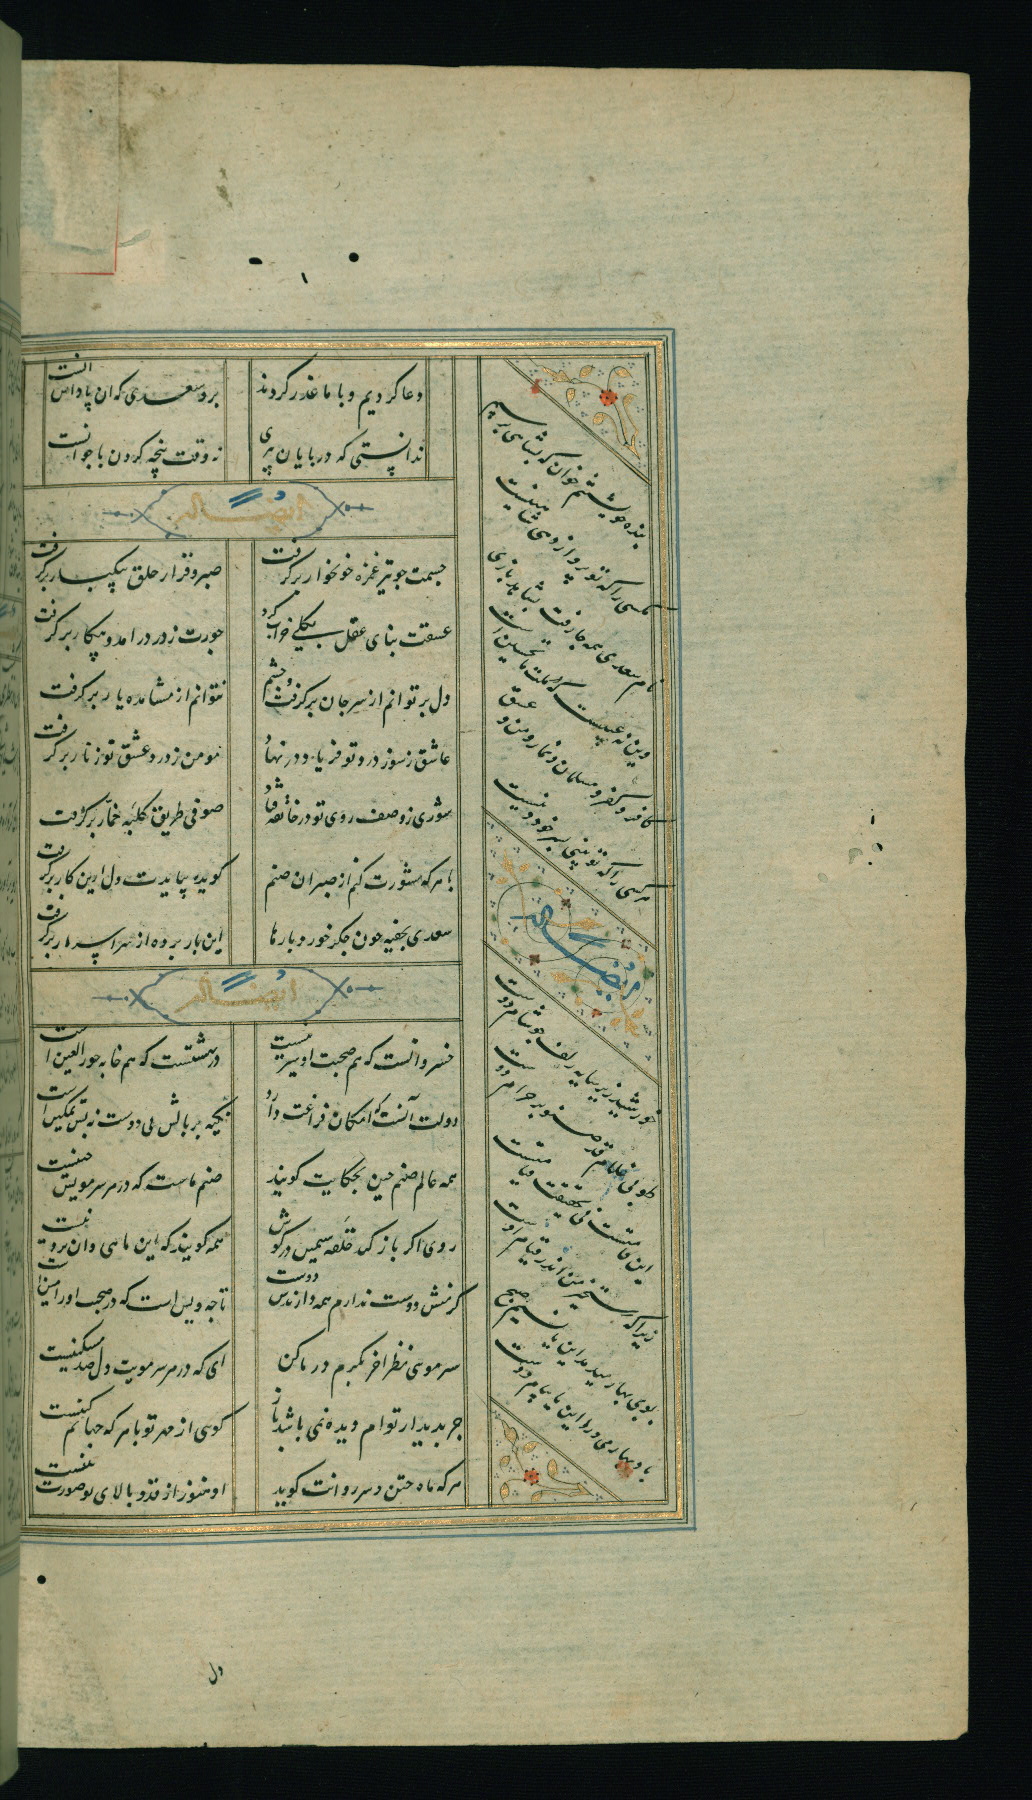 دعا کردیم و با ما غدر کردند
برو سعدی که این پاداش آنست
ندانستی که در پایان پیری
نه وقت پنجه کردن با جوانست
ایضاله
چشمت چو تیر غمزه خونخوار برگرفت
صبر و قرار خلق بیکبار برگرفت
عشقت بنای عقل بکلی خراب کرد
جورت ز در درامد و
برگرفت
دل بر توانم از سر جان برگرفت و چشم
نتوانم از مشاهده یار برگرفت
عاشق ز سوز درد تو فریاد در نهاد
مومن ز درد عشق تو زنار برگرفت
شوری ز وصف روی تو در خانقه فتاد
صوفی طریق کلبه خمار برگرفت
با هر که مشورت کنم از
صنم
گوید ببایدت دل ازین کار برگرفت
سعدی بخفیه خون جگر خورد بارها
این بار پرده از سر اسرار برگرفت
ایضاله
خسرو انست که هم صحبت او شیرینست
در بهشتست که هم خابه حور العین است
دولت آنست که امکان فراغت دارد
تکیه بر بالش بی دوست نه بس تمکین است
همه عالم صنم چین بحکایت گویند
صنم ماست که در هر سر مویش چینست
روی اگر باز کند حلقه سیمین در گوش
همه گویند که این ماهی و ان پروینست
گر منش دوست ندارم همه دارند دوست
تا چه ویس است که در هر طرفش رامینست
سر مویی نظر اخر بکرم در ما کن
ای که در هر سر مویت دل صد مسکینست
جز بدیدار توام دیده نمی باشد باز
گویی از مهر تو با هر که جهانم کینست
هر که ماه ختن و سرو روانت گوید
او هنوز از قد و بالای تو صورت بینست
بنده خویشتنم خوان که بشاهی برسم
مگسی را که تو پرواز دهی شاهینست
نام سعدی همه جا رفت بشاهد بازی
وین نه عیبست که در ملت ما تحسین است
کافر و کفر و مسلمان و نماز و من و عشق
هر کسی را که تو بینی بسر خود دینست
ایضاله
خورشید زیر سایه زلف چو شام دوست
طوبی غلام قد صنوبر خرام دوست
این قامتست نی بحقیقت قیامتست
زیرا که رستخیز من اندر قیام اوست
بوی بهار میدمد این یا نسیم صبح
باد بهاری ورد این یا پیام دوست
دل